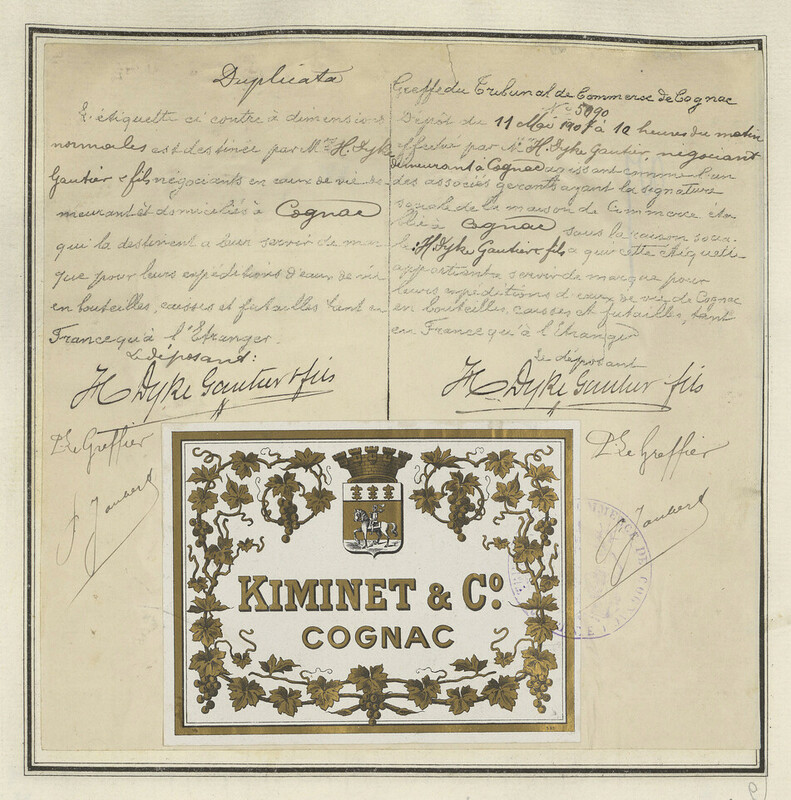 Duplicata
L'étiquette ci contre à dimensions
normales est destinée par Mrs H. Dyke
Gautier & fils négociants en eaux de vie de
meurant et domiciliés à Cognac
qui la destinent à leur servir de mar
que pour leurs expéditions d'eaux de vie
en bouteilles, caisses et futailles tant en
France qu'à l'Etranger.
Le déposant:
H Dyke Gautier & fils
P. Le Greffier
Joubert
Greffe du Tribunal de Commerce de Cognac
No 5090
Dépôt du 11 Mai 1901 à 10 heures du matin
effectué par Mr H. Dyke Gautier, négociant
demeurant à Cognac agissant comme l'un
des associés gérants ayant la signature
sociale de la maison de Commerce éta
blie à Cognac sous la raison socia
le: H. Dyke Gautier & fils à qui cette étiquette
appartient & servir de marque pour
leurs expéditions d'eaux de vie de Cognac
en bouteilles, caisses et futailles, tant
en France qu'à l'étranger
Le déposant
H Dyke Gautier fils
P. Le Greffier
Joubert
KIMINET & Co.
COGNAC